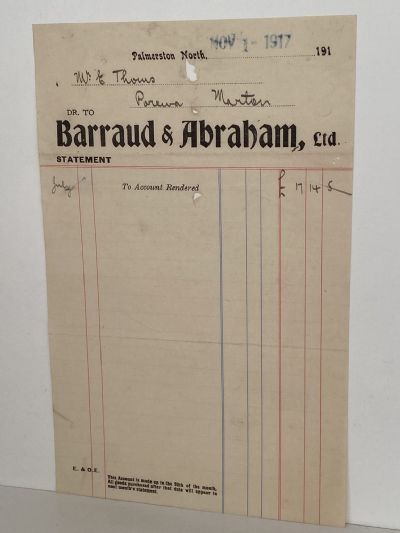 NOV 1 - 1917
Palmerston North, 191
Mr E Thoms
Porewa Marton
DR. TO
Barraud & Abraham, Ltd.
STATEMENT
July To Account Rendered £ 17 14 5
E. & O.E.
This Account is made up to the 20th of the month.
All goods purchased after that date will appear in
next month's statement.